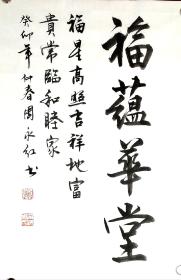 福蕴華堂
福星高照吉祥地富
貴常臨和睦家
癸卯年仲春周永红书